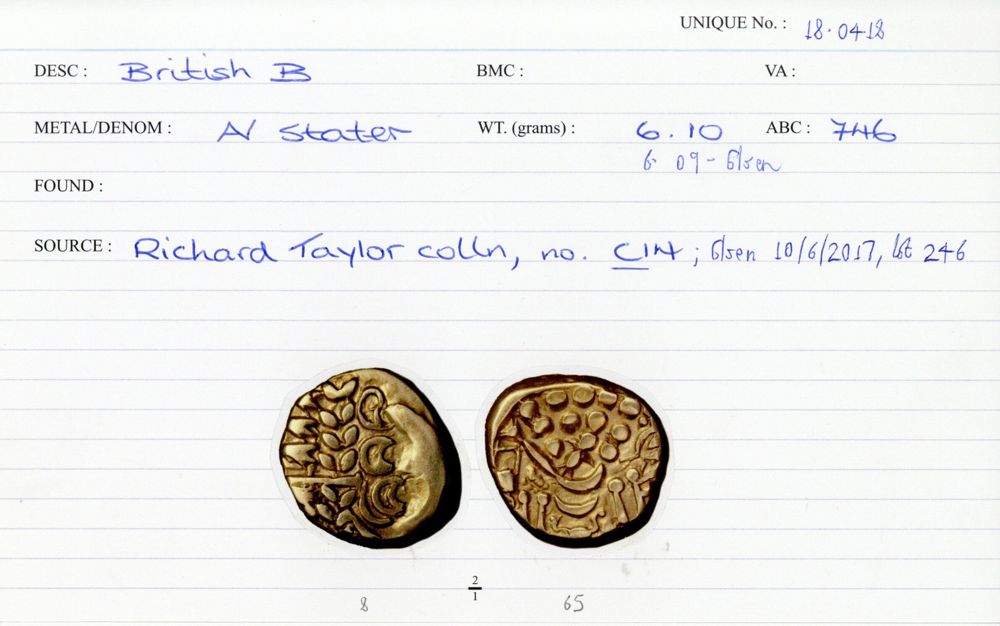 UNIQUE No. : 18.0418
DESC : British B BMC : VA :
METAL/DENOM : AV stater WT. (grams) : 6.10 ABC : 746
6.09 - Elsen
FOUND :
SOURCE : Richard Taylor colln, no. C14 ; Elsen 10/6/2017, lot 246
2
1
8 65